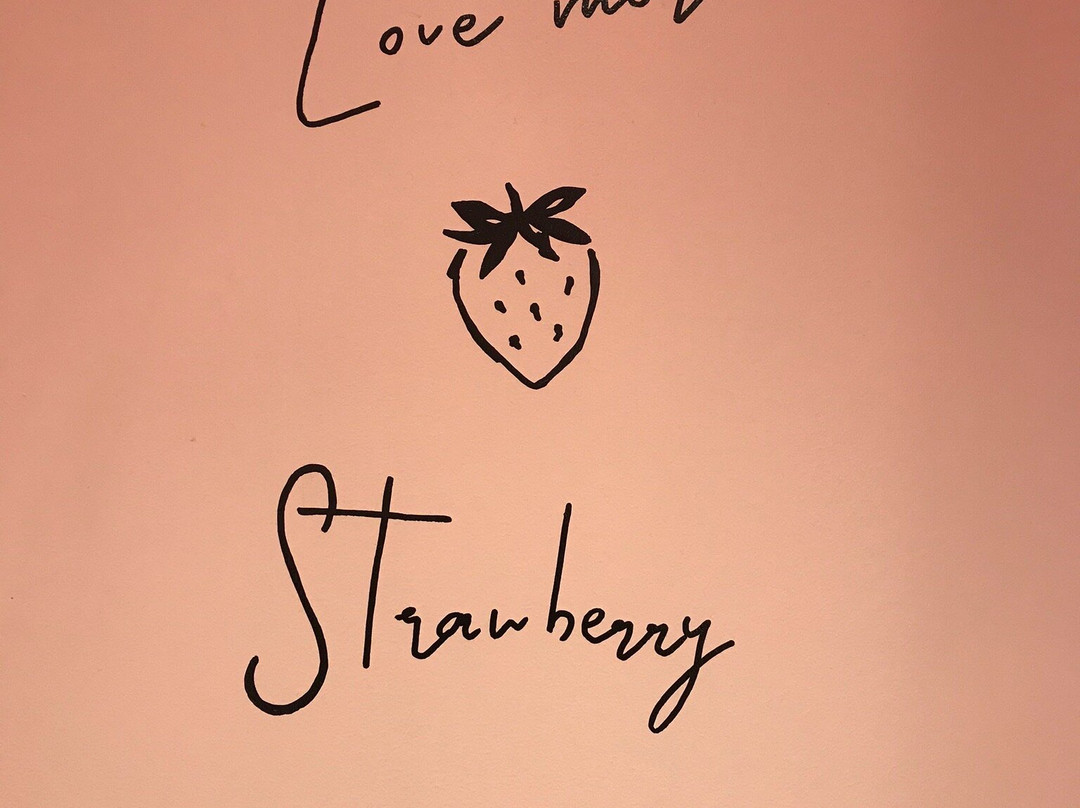 Love
Strawberry